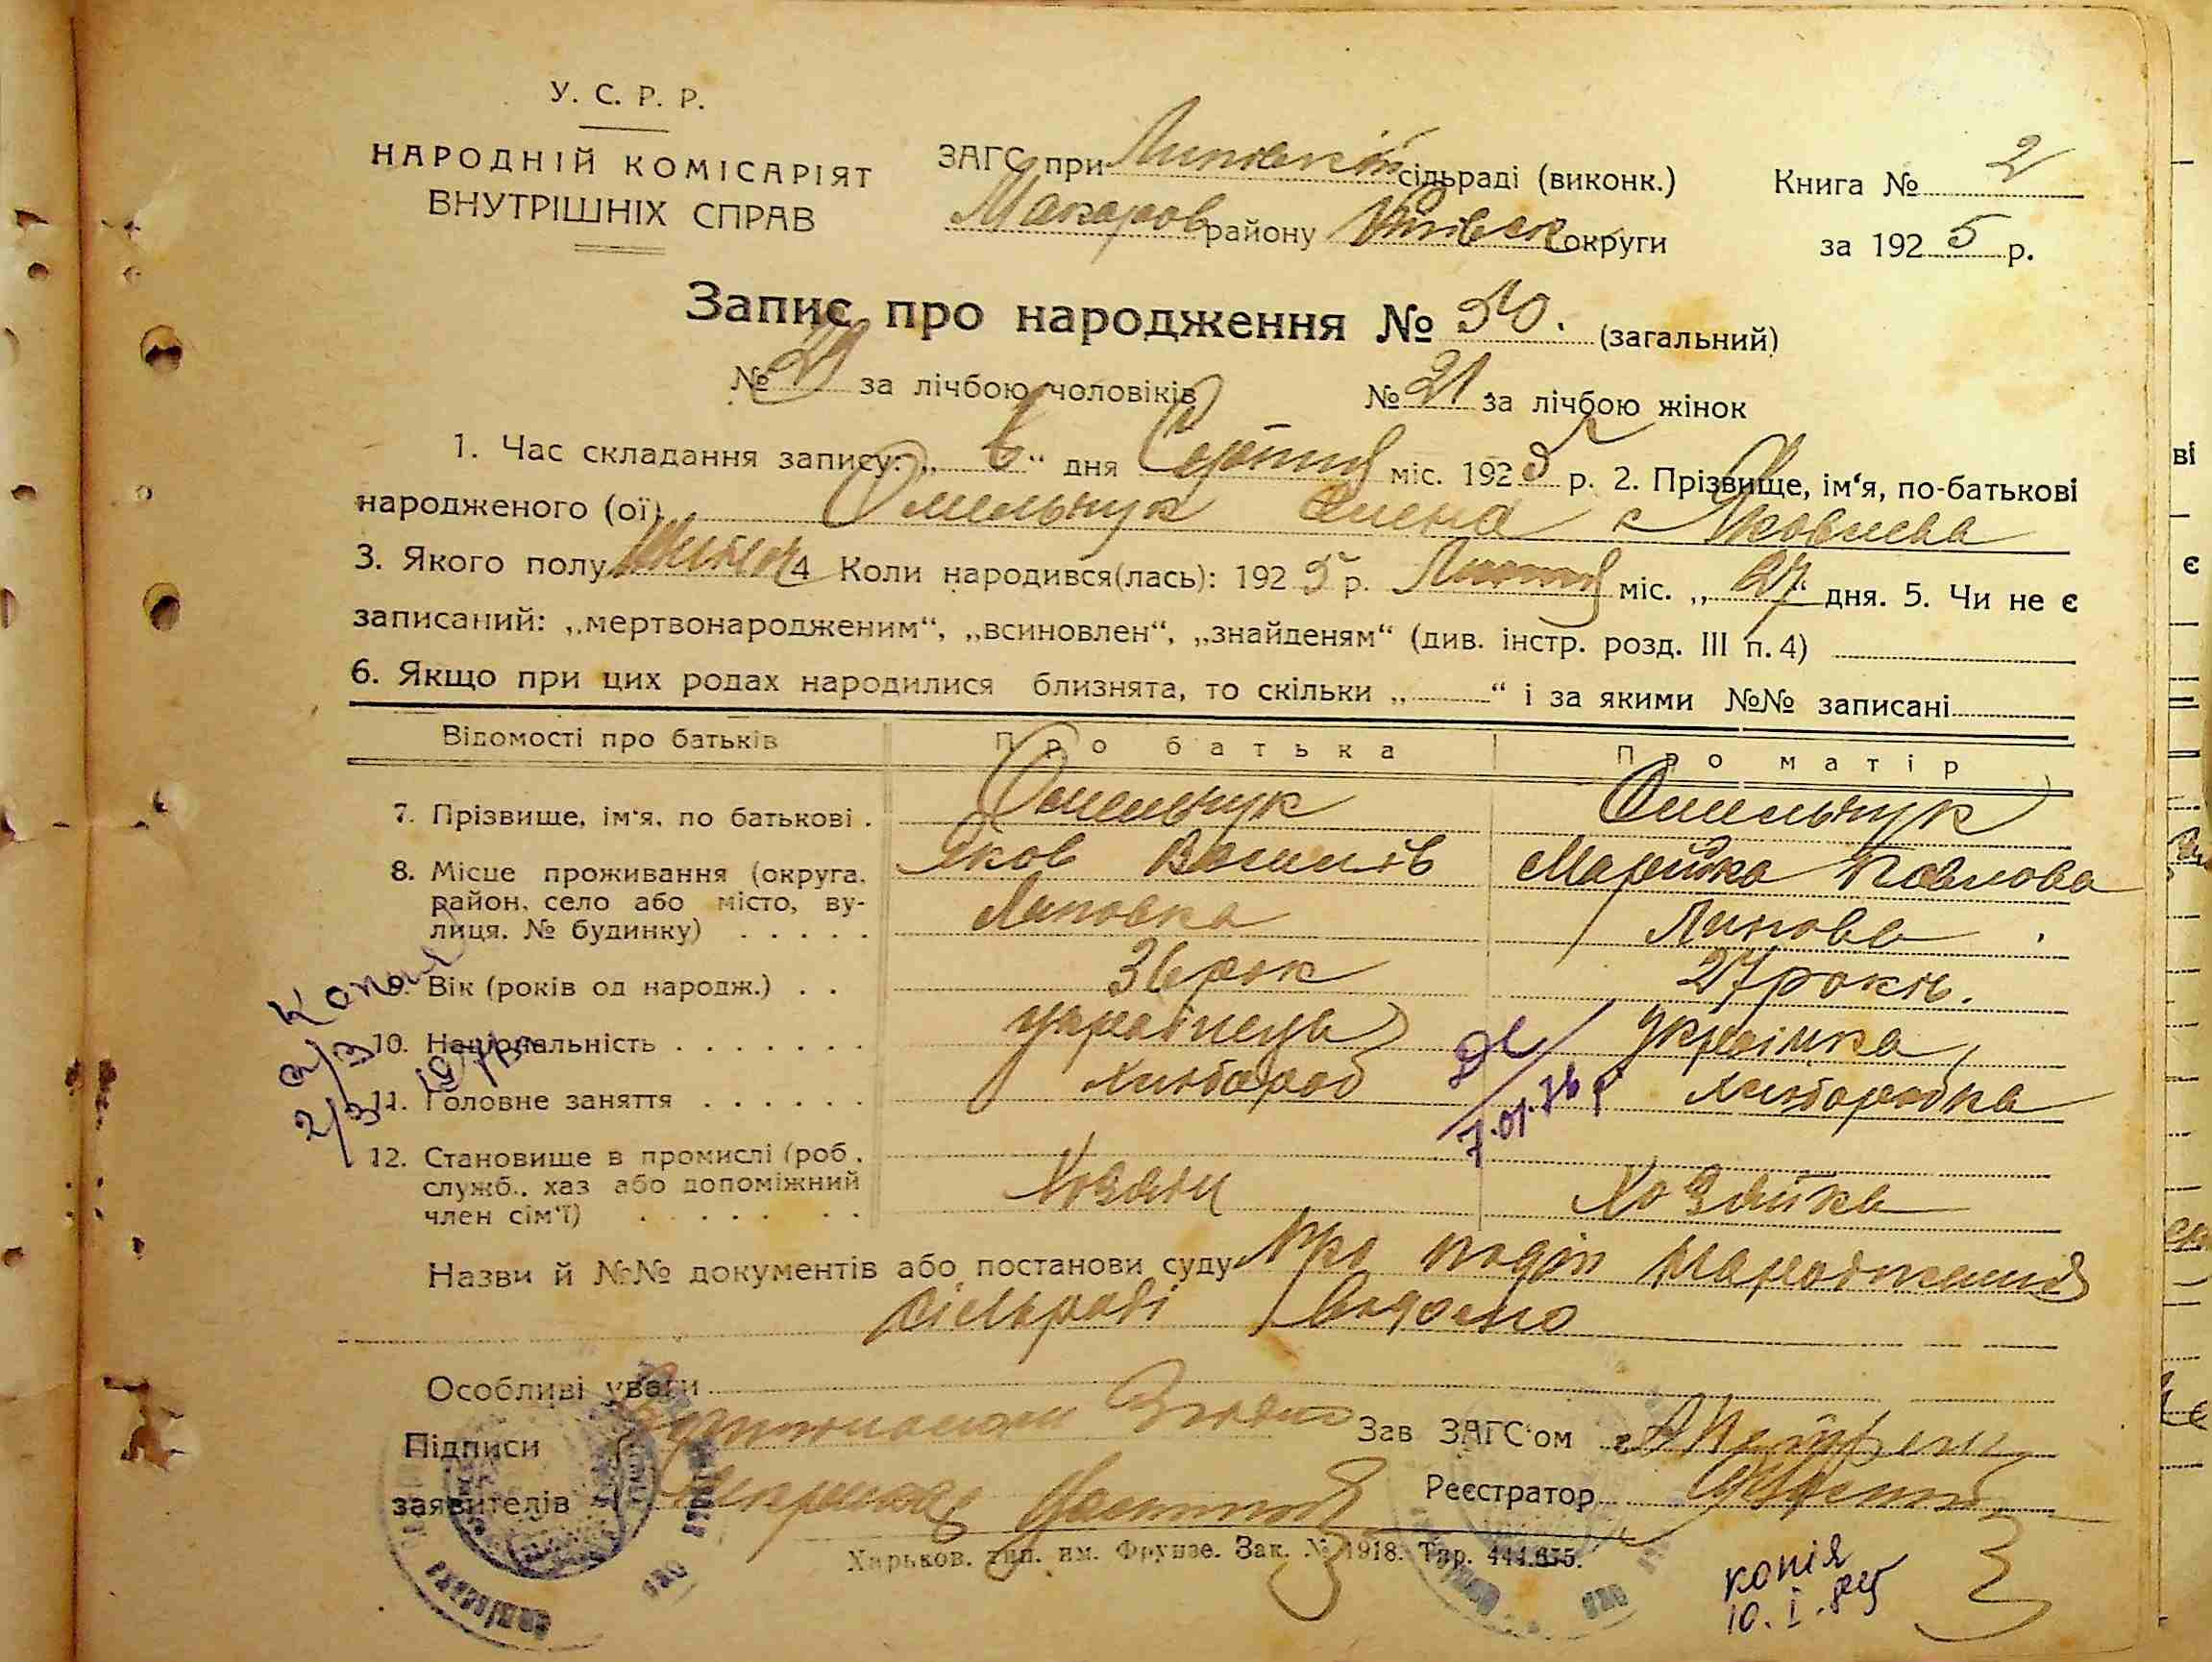 У. С. Р. Р.
НАРОДНІЙ КОМІСАРІЯТ
ВНУТРІШНІХ СПРАВ
ЗАГС при Липівскій сільраді (виконк.)
Макаров району Київск округи
Книга № 2
за 1925 р.
Запис про народження № 50. (загальний)
№ 29 за лічбою чоловіків № 21 за лічбою жінок
1. Час складання запису: „ 6 “ дня міс. 1925 р. 2. Прізвище, ім‘я, по-батькові
народженого (ої) Омельчук Олена Яковлева
3. Якого полу 4 Коли народився(лась): 1925 р. міс. „ 27 “ дня. 5. Чи не є
записаний: „мертвонародженим“, „всиновлен“, „знайденям“ (див. інстр. розд. III п. 4)
6. Якщо при цих родах народилися близнята, то скільки „ “ і за якими №№ записані
Відомості про батьків Про батька Про матір
7. Прізвище, ім‘я, по батькові . Омельчук Омельчук
Яков Василів Марійка Павлова
8. Місце проживання (округа, район, село або місто, ву-
лиця, № будинку) . . . . . Липовка Липовка
9. Вік (років од народж.) . . 36 рок 27 років.
10. Національність . . . . . . . українець українка
11. Головне заняття . . . . . . хлібороб хліборобка
12. Становище в промислі (роб., служб., хаз або допоміжний
член сім‘ї) . . . . . . . Хозяин Хозяйка
Назви й №№ документів або постанови суду Про подію народження
сільраді відомо
Особливі уваги
Підписи
заявителів
Зав ЗАГС‘ом
Реєстратор
Харьков. тип. им. Фрунзе. Зак. № 1918. Тир. 444.675.
копія
10. I. 85